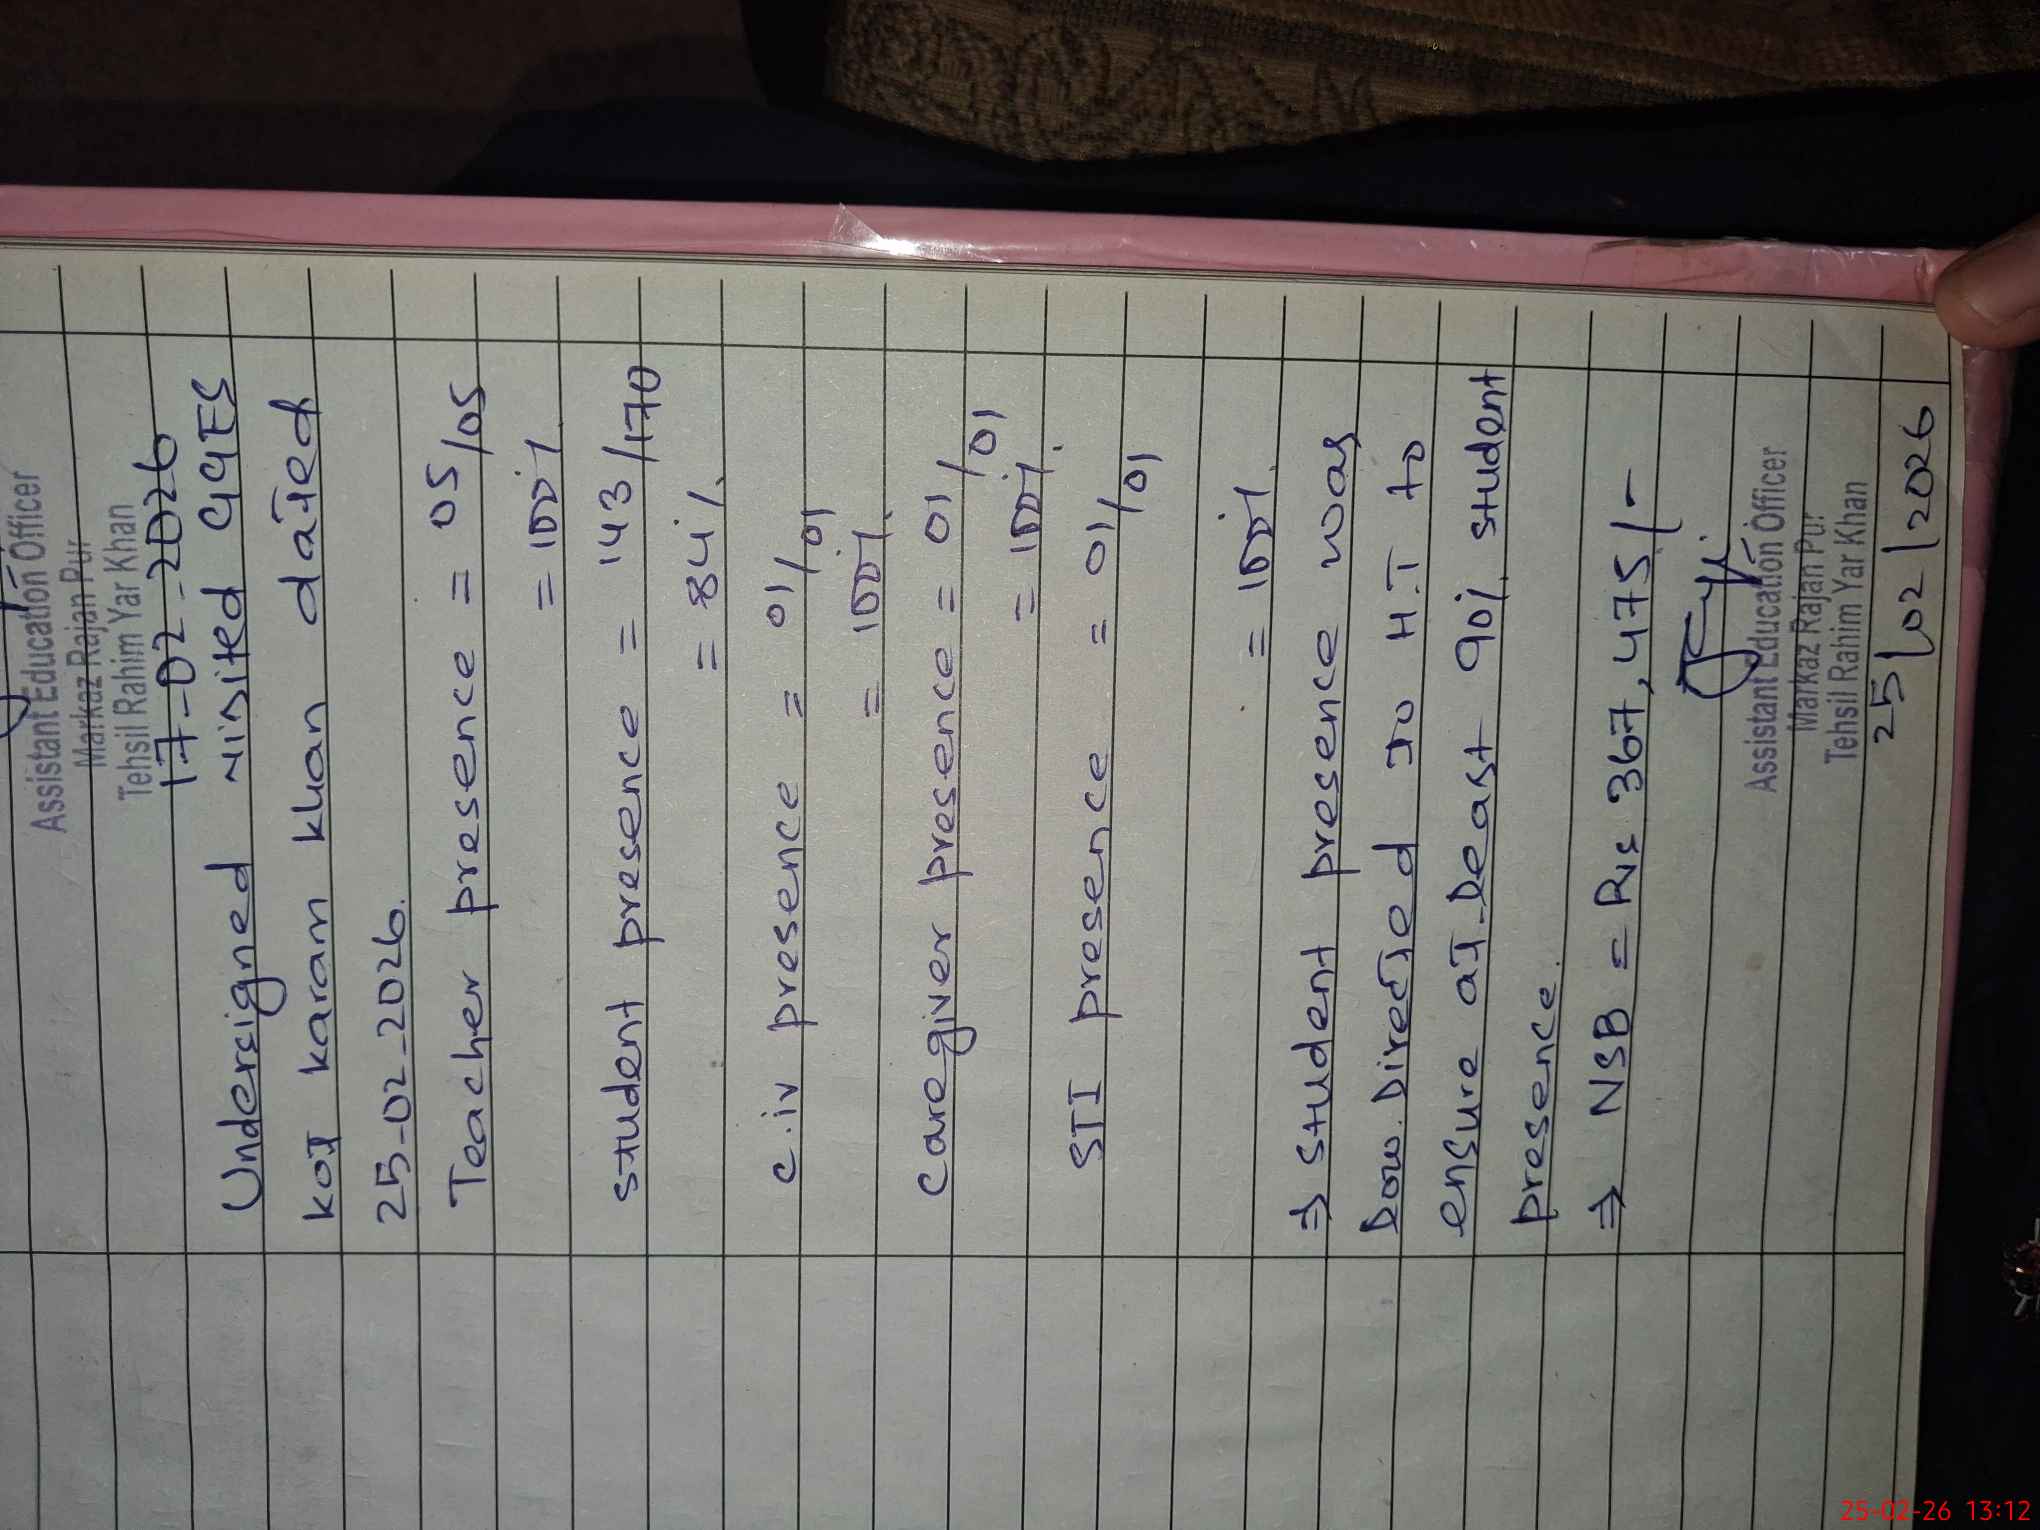 Assistant Education Officer
Markaz Rajan Pur
Tehsil Rahim Yar Khan
17-02-2026
Undersigned visited GGES
kot karam khan dated
25-02-2026.
Teacher presence = 05/05
= 100%
student presence = 143/170
= 84%
c.iv presence = 01/01
= 100%
Caregiver presence = 01/01
= 100%.
STI presence = 01/01
= 100%
⇒ student presence was
Low. Directed to H.T to
ensure at-Least 90% student
presence.
⇒ NSB = Rs 367,475/-
Assistant Education Officer
Markaz Rajan Pur
Tehsil Rahim Yar Khan
25/02/2026
25-02-26 13:12